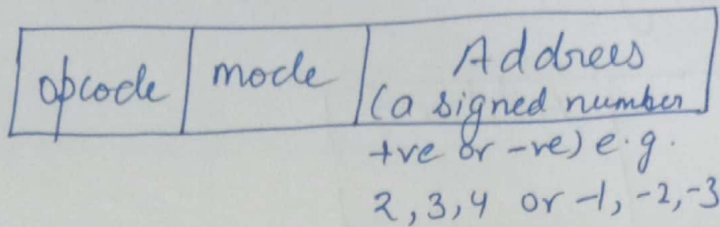 opcode mode Address
(a signed number
+ve or -ve) e.g.
2, 3, 4 or -1, -2, -3